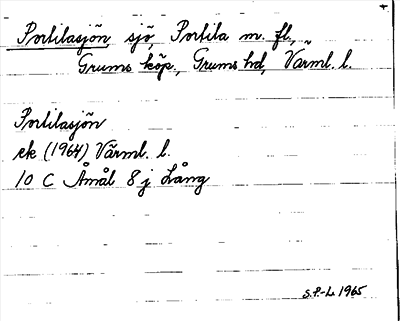 Portilasjön, sjö, Portila m. fl.,
Grums köp., Grums hd, Värml. l.
Portilasjön
ek (1964) Värml. l.
10 C Åmål 8 j Lång
S.P.-L. 1965